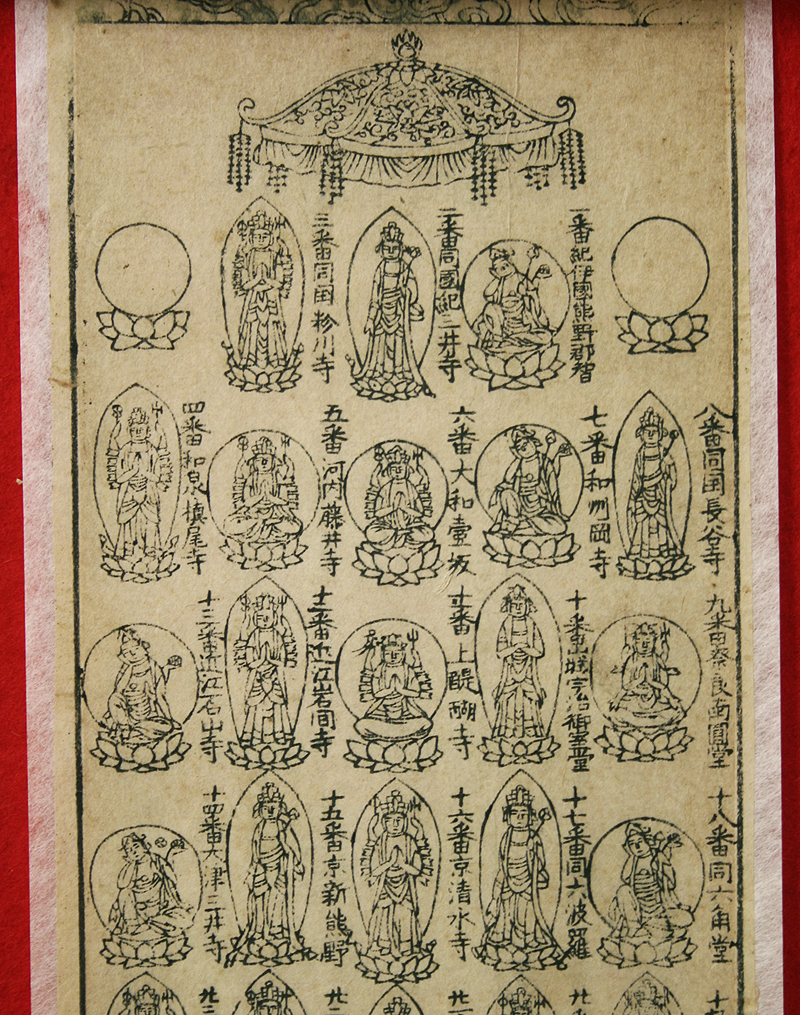 一番紀伊國熊野那智
二番同國紀三井寺
三番同国粉川寺
四番和泉槙尾寺
五番河内藤井寺
六番大和壷坂
七番和州岡寺
八番同国長谷寺
九番奈良南圓堂
十番山城宇治御室堂
十一番上醍醐寺
十二番近江岩間寺
十三番近江石山寺
十四番大津三井寺
十五番京新熊野
十六番京清水寺
十七番同六波羅
十八番同六角堂